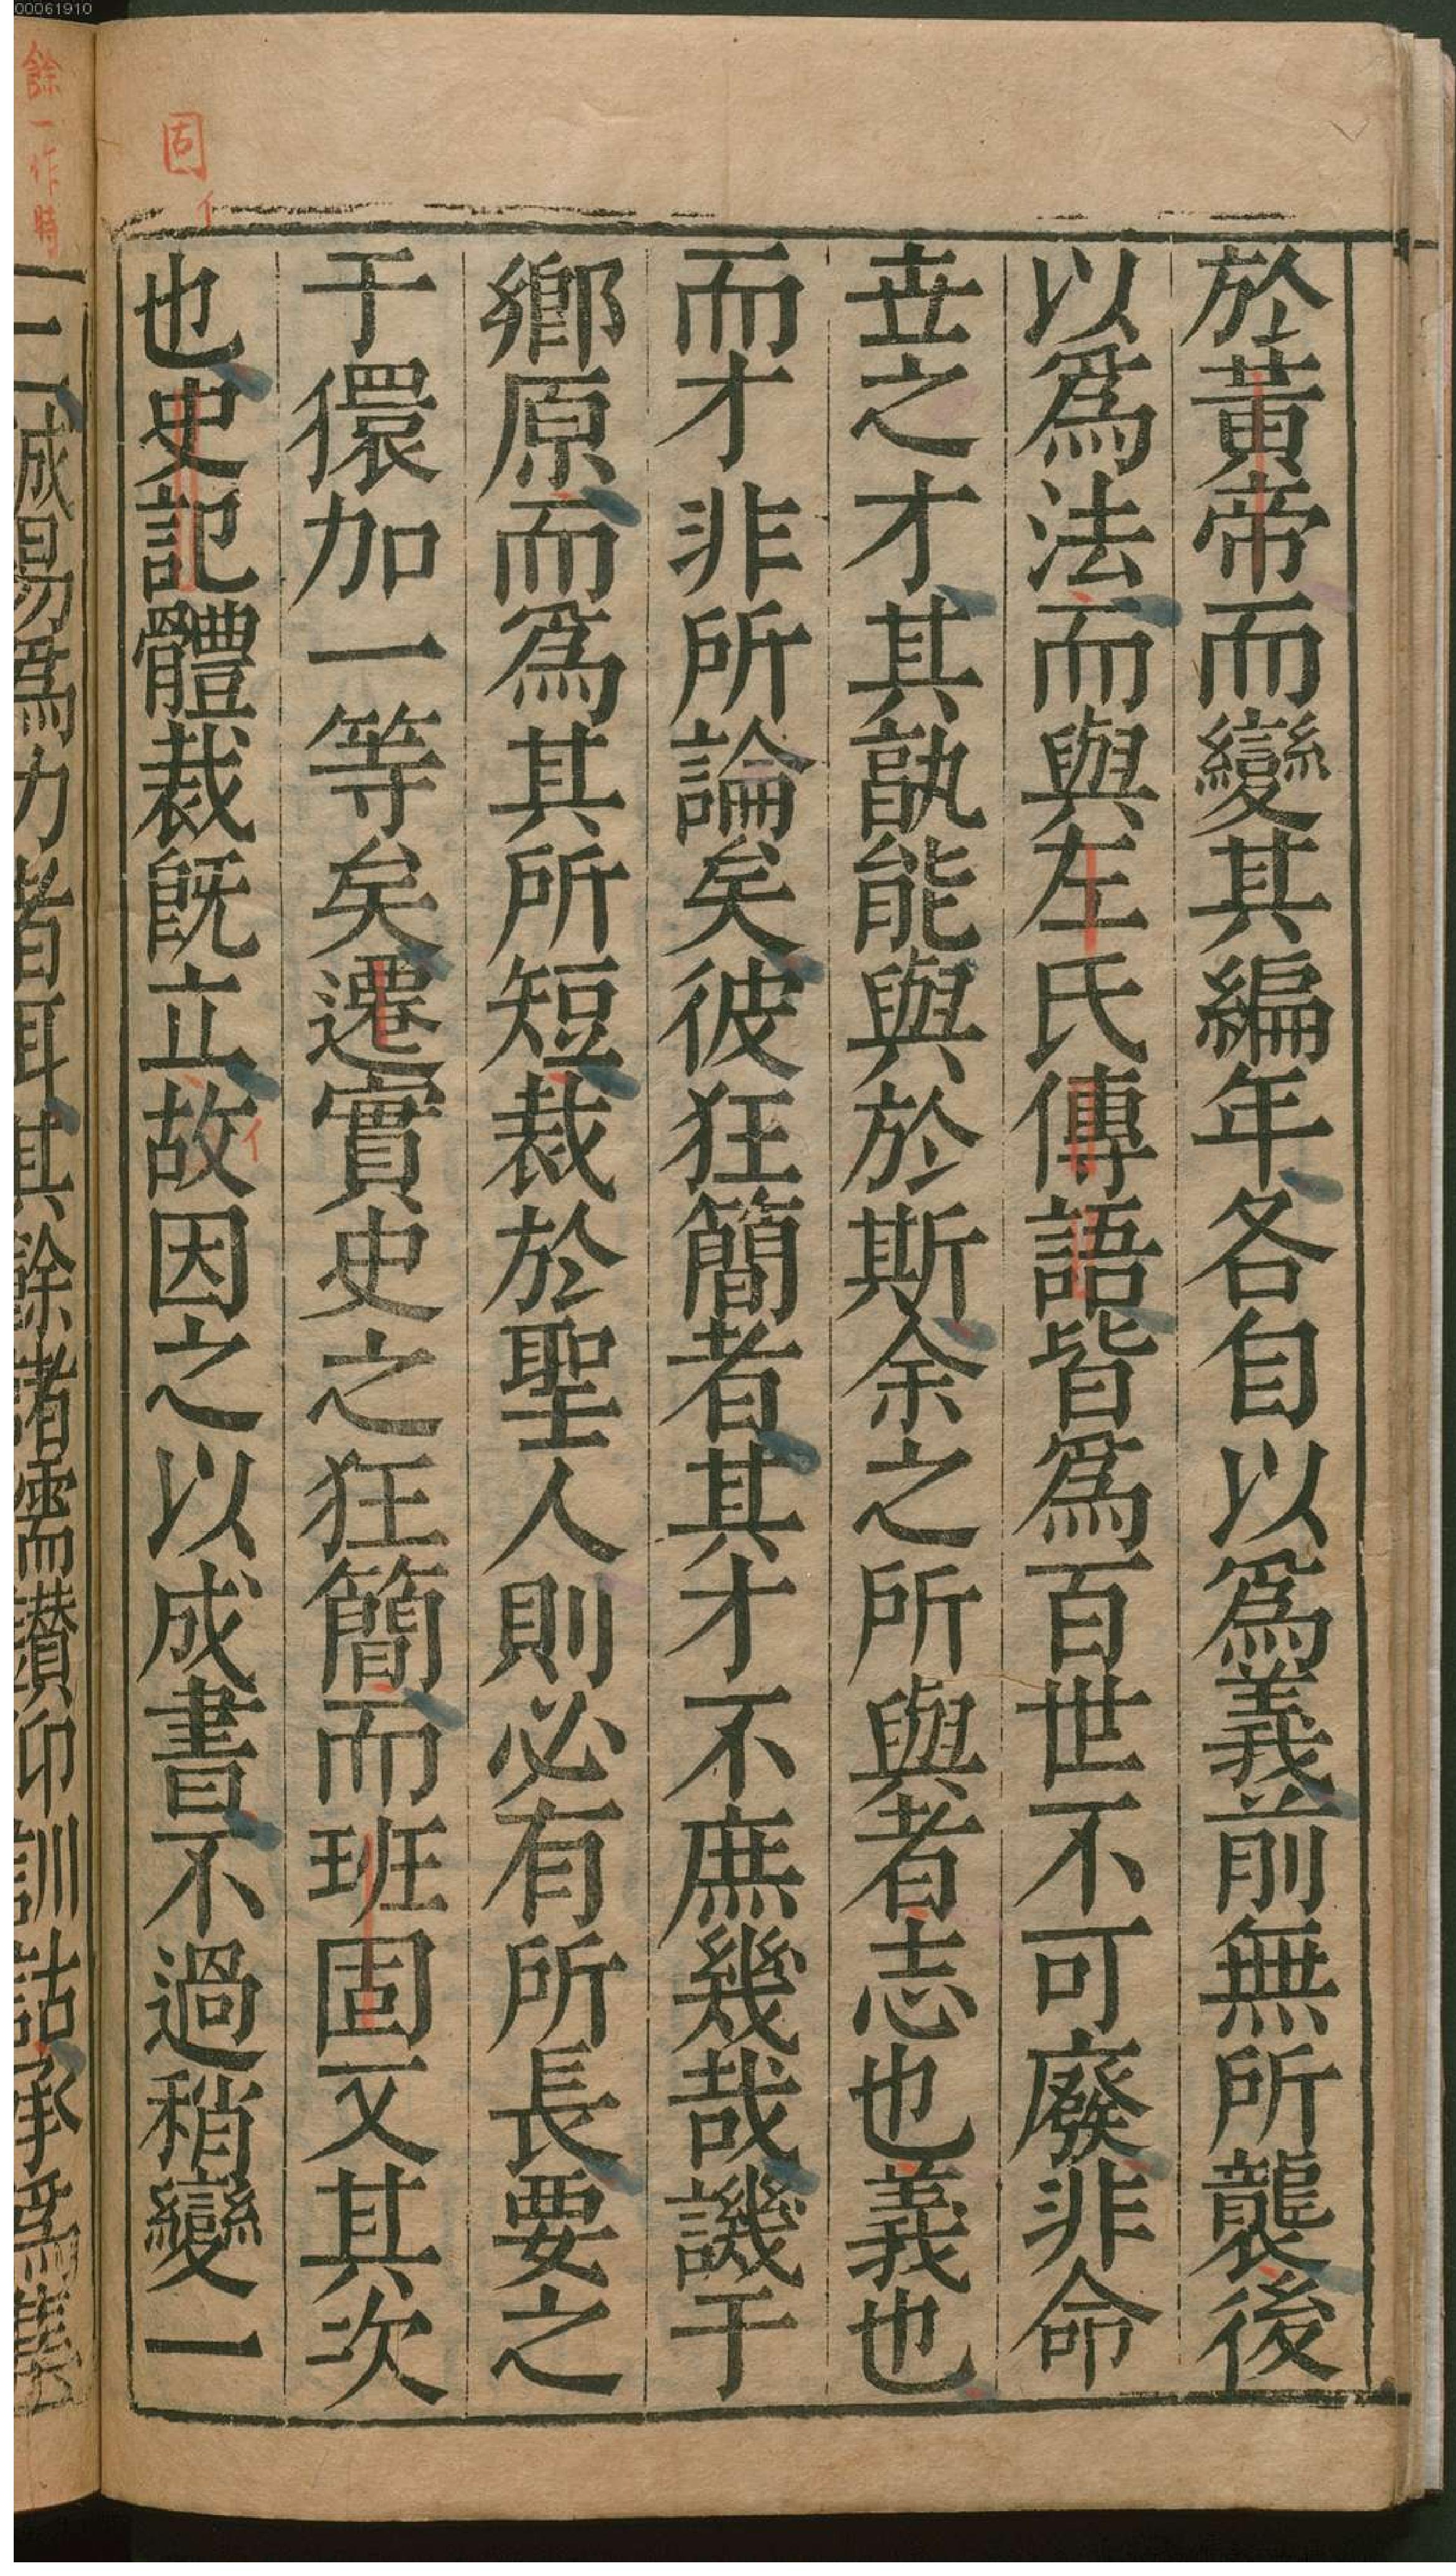 00061910
於黃帝而變其編年各自以爲義前無所襲後
以爲法而與左氏傳語皆爲百世不可廢非命
丗之才其孰能與於斯余之所與者志也義也
而才非所論矣彼狂簡者其才不庶幾哉譏于
鄉原而爲其所短裁於聖人則必有所長要之
于儇加一等矣遷實史之狂簡而班固又其次
也史記體裁旣立故因之以成書不過稍變一
固イ
イ
餘一作時